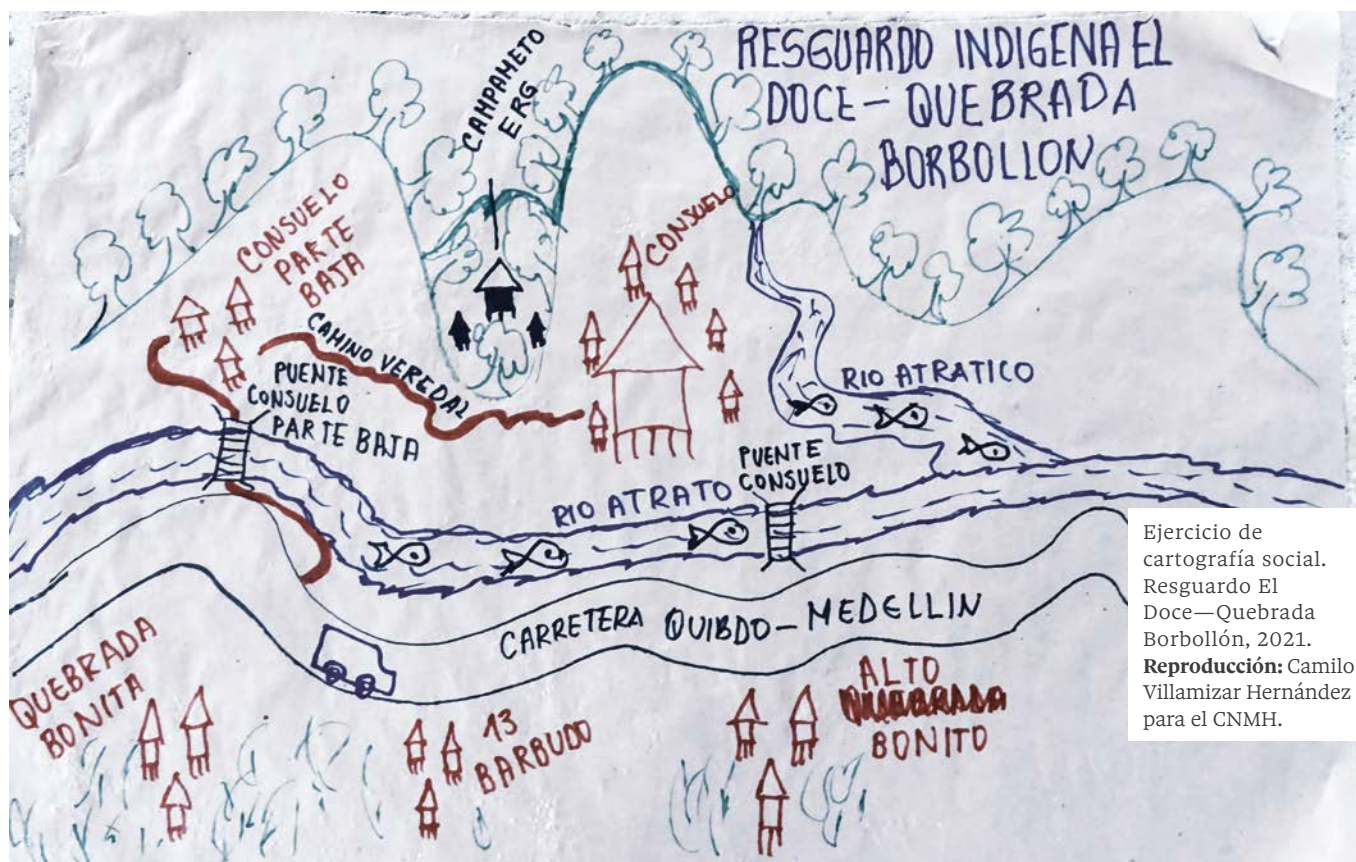 RESGUARDO INDIGENA EL
DOCE - QUEBRADA
BORBOLLON
CAMPAMETO
ERG
CONSUELO
PARTE
BAJA
CONSUELO
CAMINO VEREDAL
PUENTE
CONSUELO
PARTE BAJA
RIO ATRATICO
PUENTE
CONSUELO
RIO ATRATO
CARRETERA QUIBDO - MEDELLIN
QUEBRADA
BONITA
13
BARBUDO
ALTO
BONITO
Ejercicio de
cartografía social.
Resguardo El
Doce—Quebrada
Borbollón, 2021.
Reproducción: Camilo
Villamizar Hernández
para el CNMH.